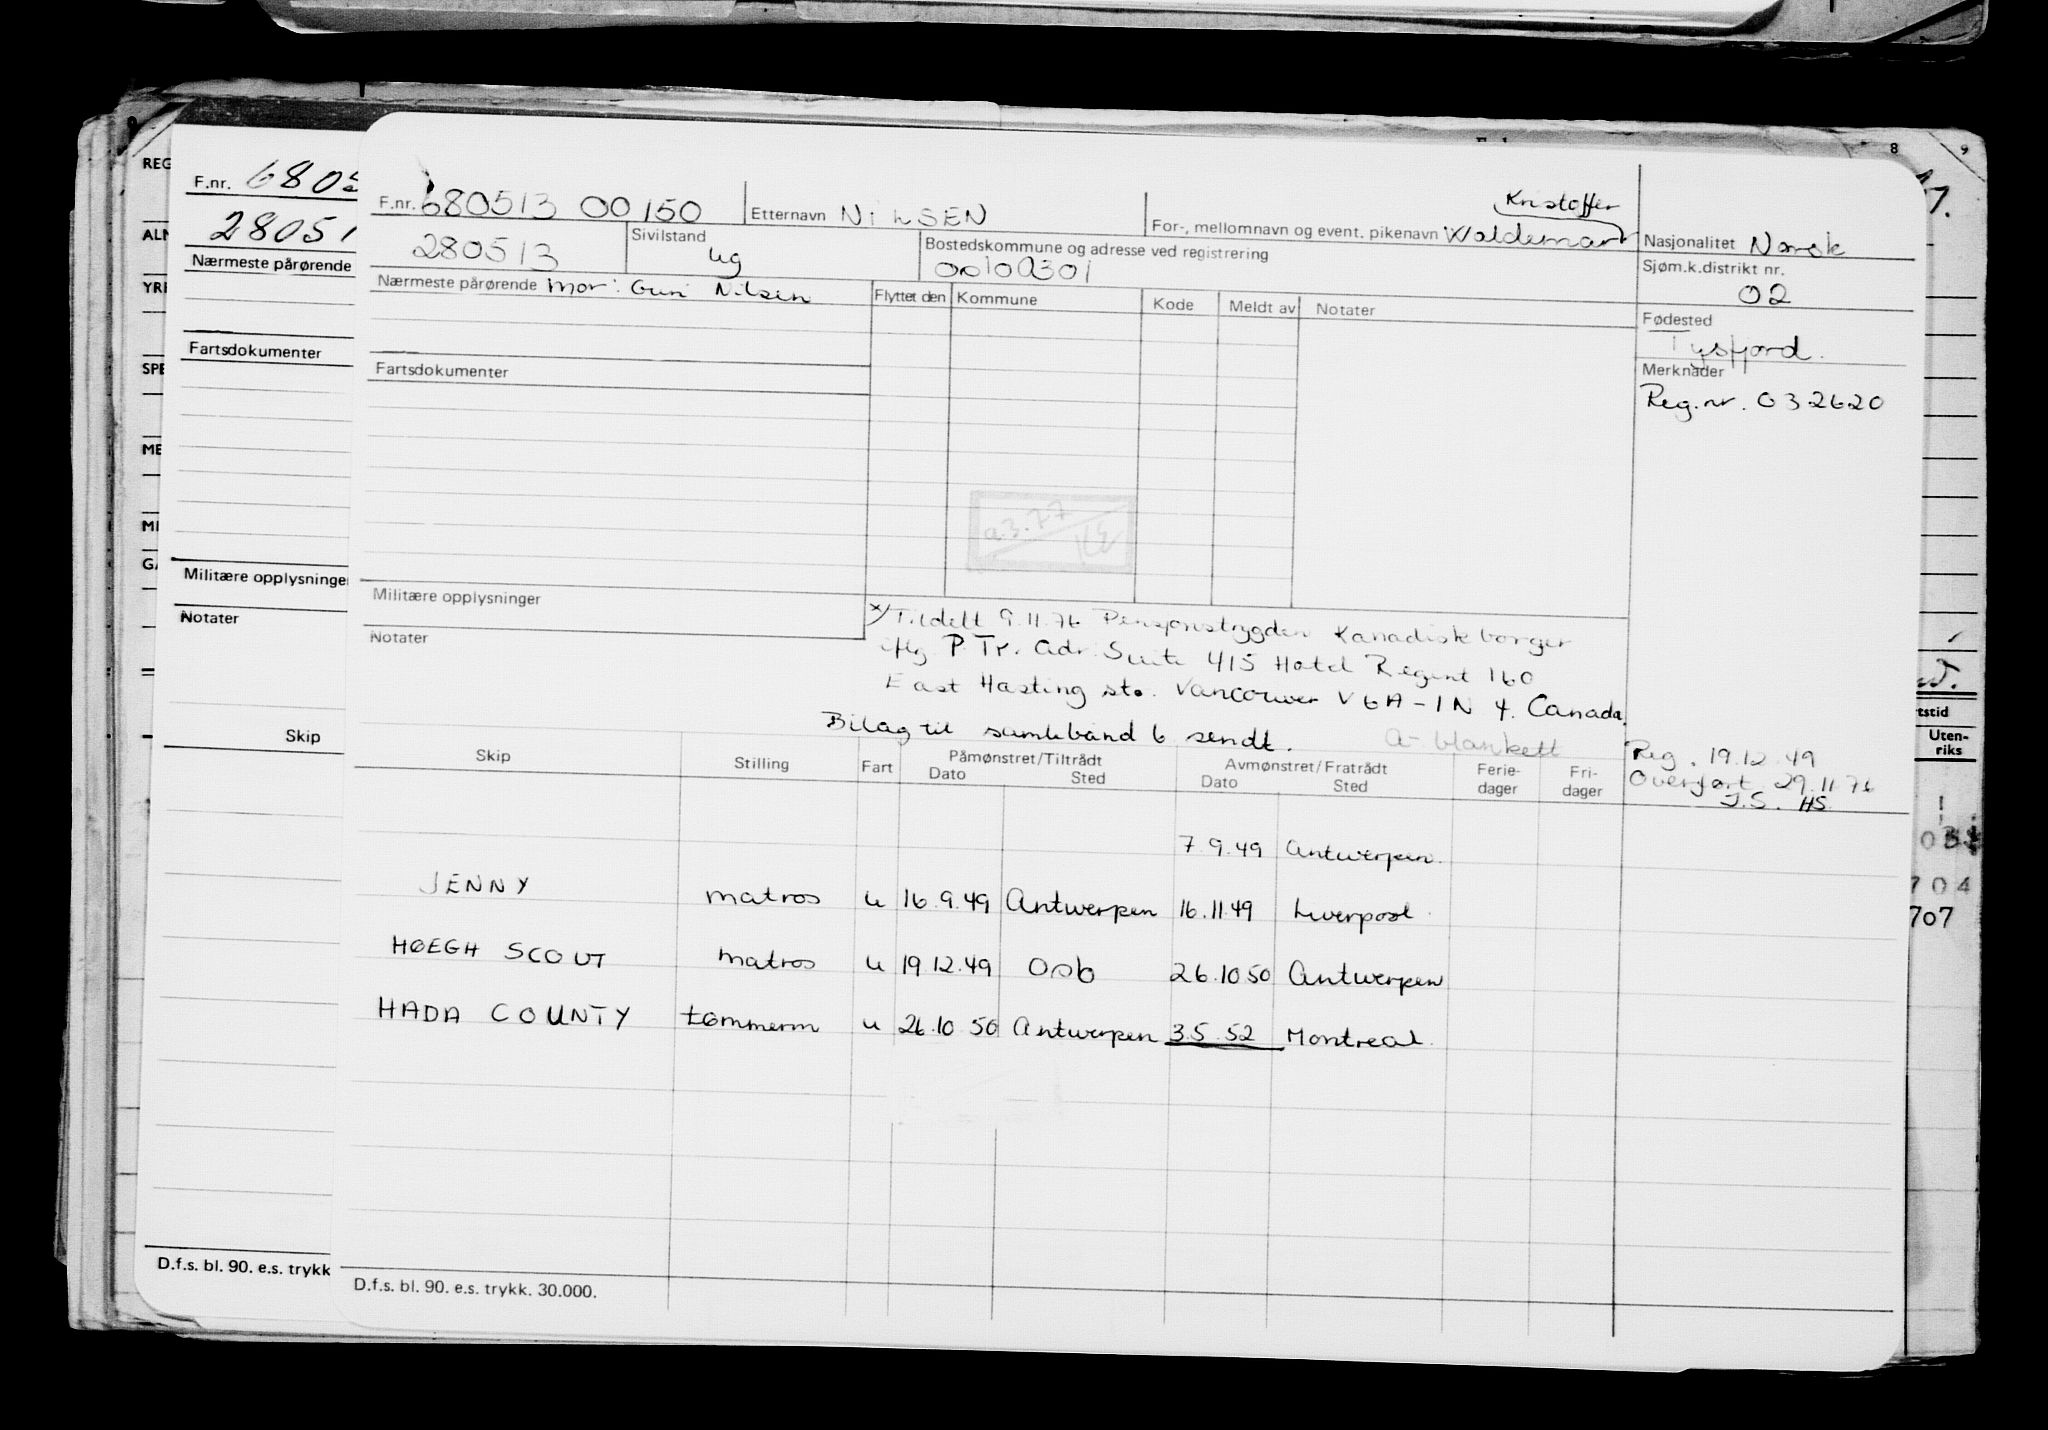 REG
F.nr. 6805
28051
ALM
Nærmeste pårørende
YR
Fartsdokumenter
SPE
ME
MI
GA
Militære opplysninger
Notater
Skip
D.f.s. bl. 90. e.s. trykk
F.nr. 680513 00150 Etternavn NILSEN For-, mellomnavn og event. pikenavn Waldemar Kristoffer
280513 Sivilstand ug Bostedskommune og adresse ved registrering 00100301 Nasjonalitet Norsk
Nærmeste pårørende mor: Guri Nilsen Flyttet den Kommune Kode Meldt av Notater Sjøm.k.distrikt nr. 02
Fødested Tysfjord.
Fartsdokumenter
Merknader
Reg.nr. 032620
Militære opplysninger
Notater
x) Tildelt 9.11.76 Pensjonstrygden Kanadisk borger
iflg. P.Tr. Adr. Suite 415 Hotel Regent 160
East Hasting str. Vancouver V6A-1N 4. Canada.
Bilag til samlebånd 6 sendt. A- blankett
Reg. 19.12.49
Overført 29.11.76
J.S. HS
Skip Stilling Fart Påmønstret/Tiltrådt Dato Sted Avmønstret/Fratrådt Dato Sted Ferie-dager Fri-dager
7.9.49 Antwerpen.
JENNY matros u 16.9.49 Antwerpen 16.11.49 Liverpool.
HØEGH SCOUT matros u 19.12.49 Oslo 26.10 50 Antwerpen
HADA COUNTY tømmerm u 26.10 50 Antwerpen 3.5.52 Montreal.
D.f.s. bl. 90. e.s. trykk. 30.000.
8
9
Uten-
riks
704
707